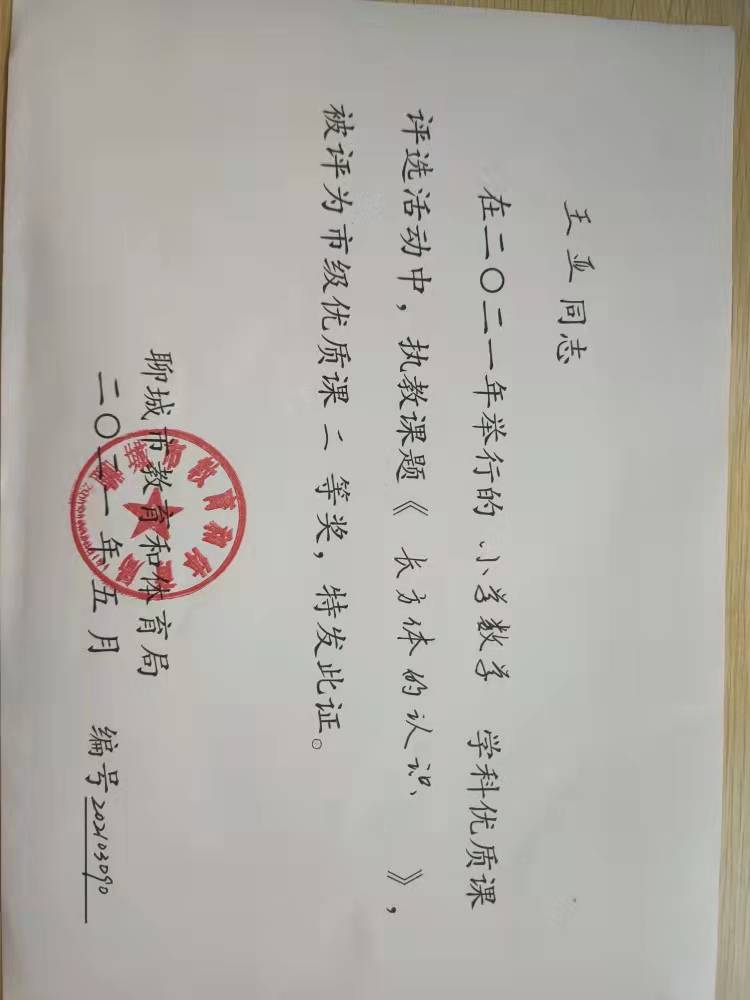 王亚同志
在二〇二一年举行的 小学数学 学科优质课
评选活动中，执教课题《 长方体的认识 》，
被评为市级优质课 二 等奖，特发此证。
聊城市教育和体育局
二〇二一年五月 编号 202103090